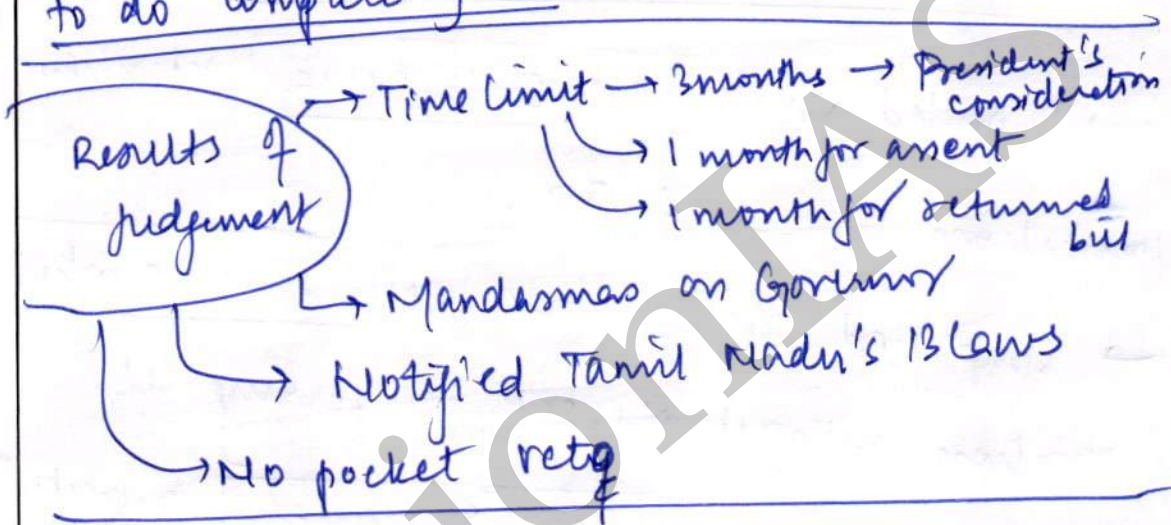 to do
Results of judgement
→ Time limit → 3 months → President's consideration
→ 1 month for assent
→ 1 month for returned bill
→ Mandasmas on Governor
→ Notified Tamil Nadu's 13 Laws
→ No pocket veto
ionIAS